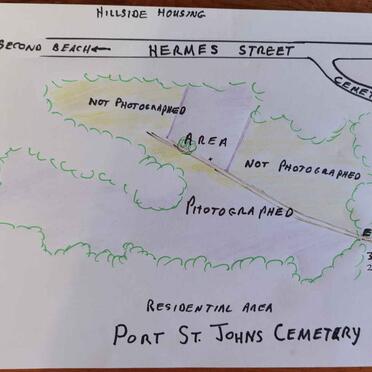 HILLSIDE HOUSING
SECOND BEACH
HERMES STREET
NOT PHOTOGRAPHED
AREA
NOT PHOTOGRAPHED
PHOTOGRAPHED
RESIDENTIAL AREA
PORT ST. JOHNS CEMETERY